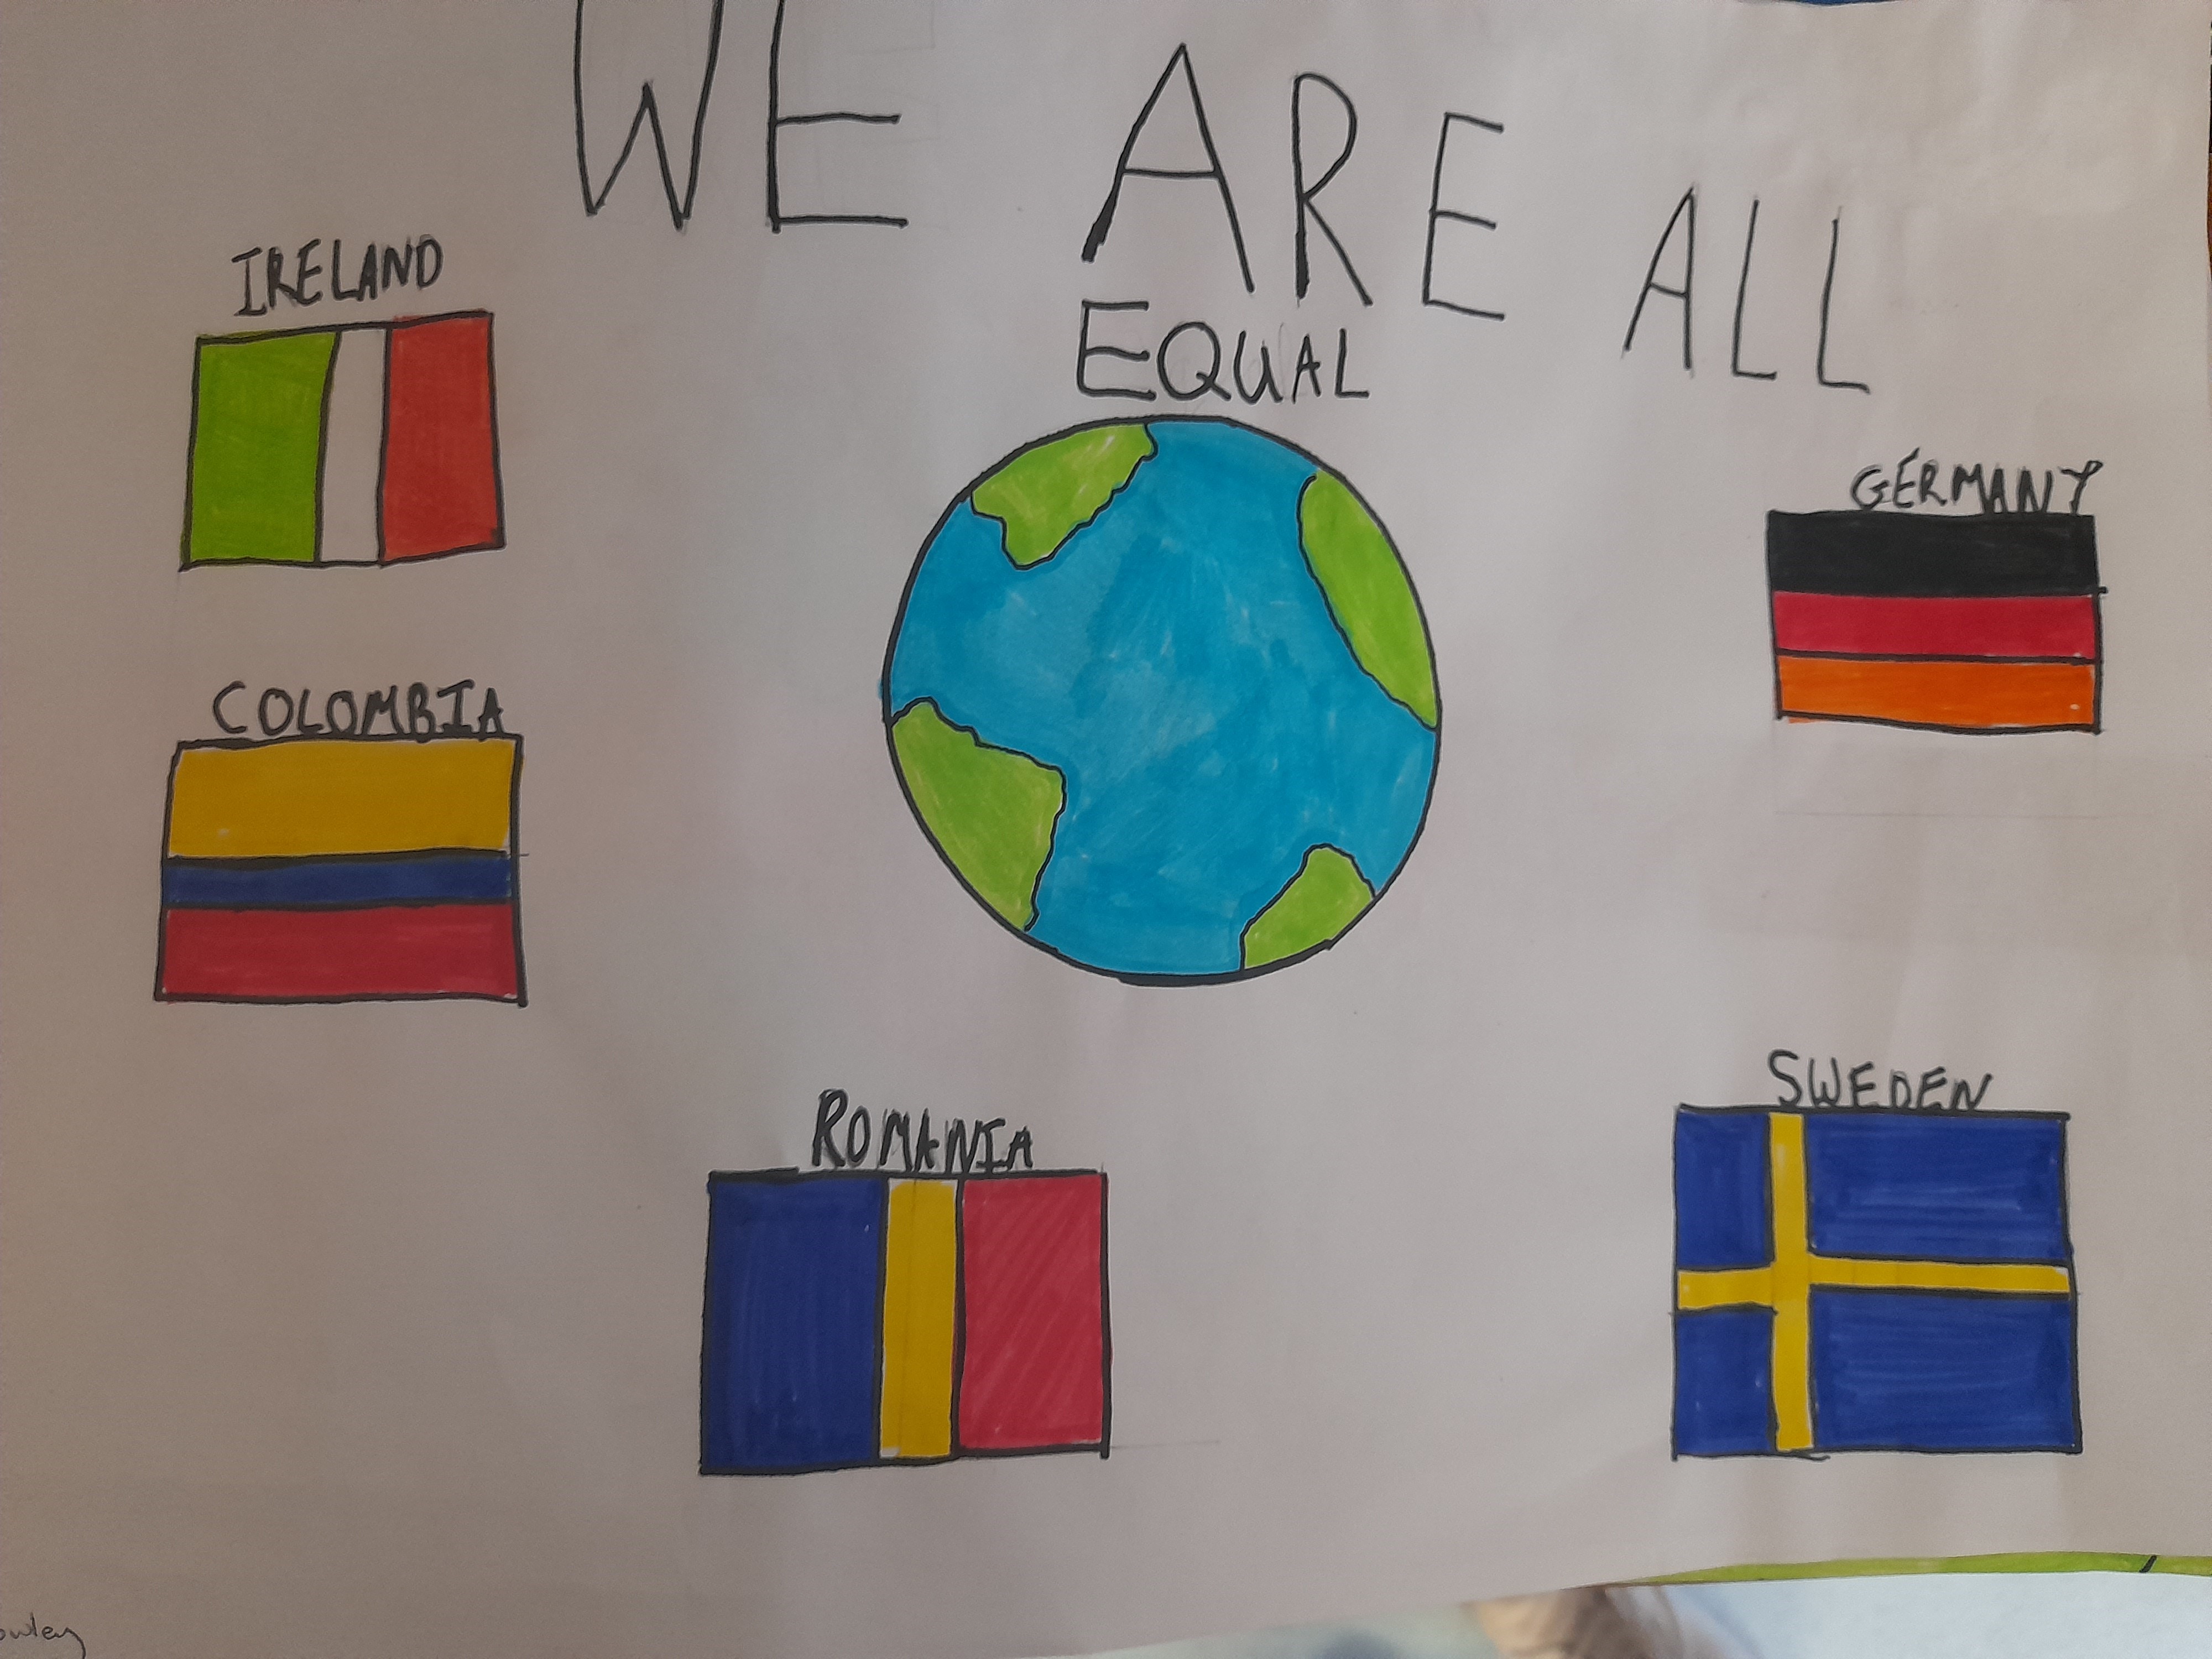 WE ARE ALL
EQUAL
IRELAND
GERMANY
COLOMBIA
SWEDEN
ROMANIA